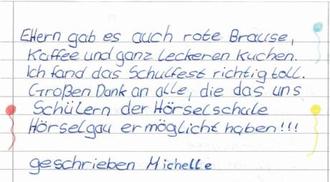 Eltern gab es auch rote Brause,
Kaffee und ganz leckeren Kuchen.
Ich fand das Schulfest richtig toll.
Großen Dank an alle, die das uns
Schülern der Hörselschule
Hörselgau ermöglicht haben!!!
geschrieben Michelle